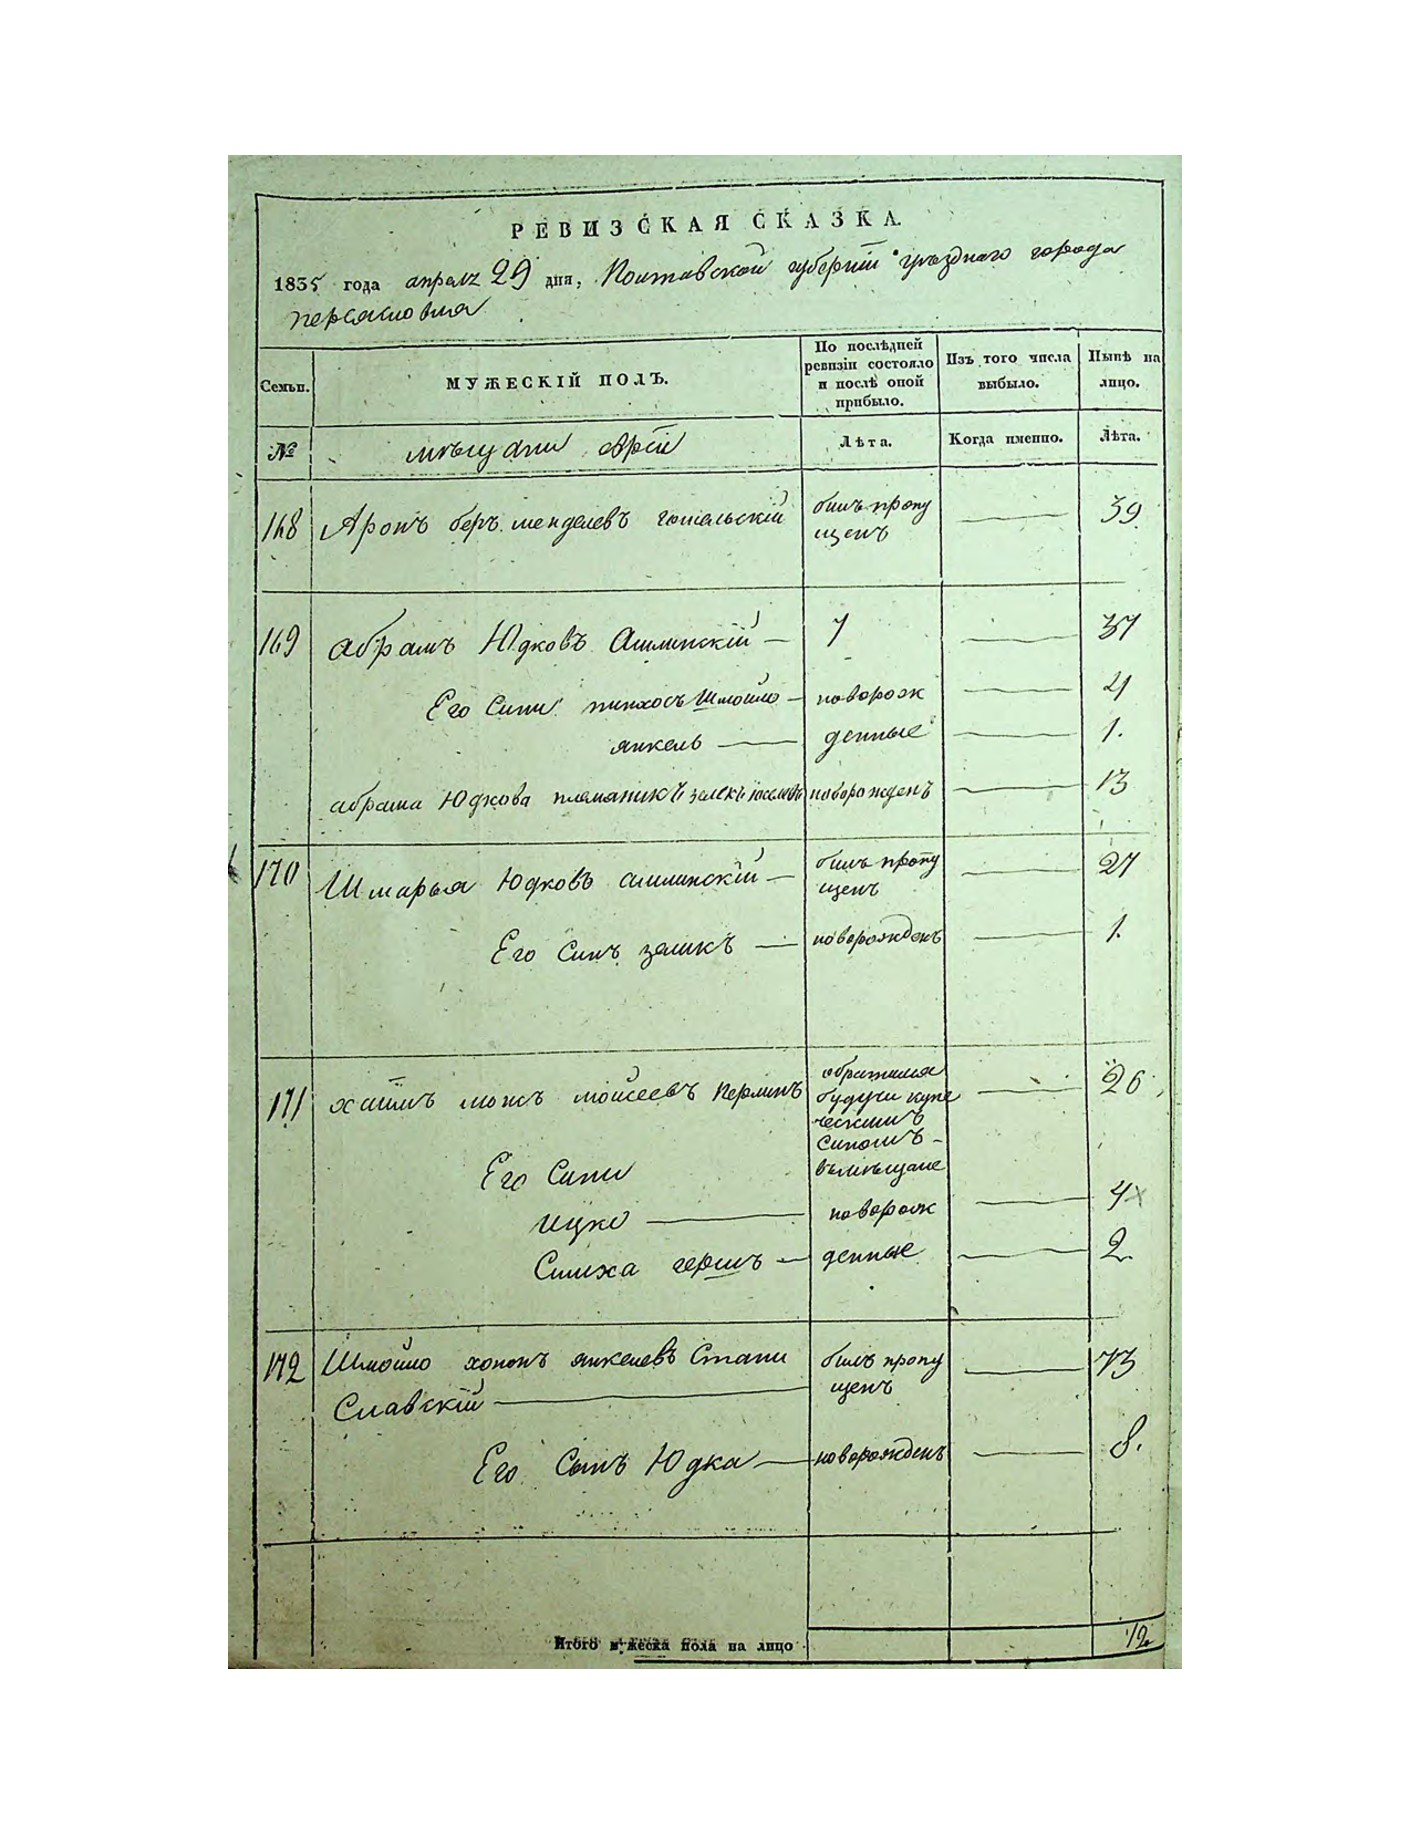 РЕВИЗСКАЯ СКАЗКА.
1835 года апреля 29 дня, Полтавской губернии уезднаго города
переяслова
Семьи. МУЖЕСКІЙ ПОЛЪ. По послѣдней ревизіи состояло и послѣ оной прибыло. Изъ того числа выбыло. Нынѣ на лицо.
№ мѣщани евреи Лѣта. Когда именно. Лѣта.
168 Аронъ беръ менделевъ гомельскій билъ пропу 39
щенъ
169 абрамъ Юдковъ Ошлинскій — 7 37
Его Сини пинхосъ Шмойло — новорож 4
янкель — денные 1.
абрама Юдкова племяникъ новорожденъ 13
170 Шмарья Юдковъ ошлинскій — билъ пропу 27
щенъ
Его Синъ зеликъ — новорожденъ 1.
171 хаимъ мойсеевъ Перлинъ обратился 26
будучи купе
ческимъ
Синомъ —
Его Сини вьмѣщане
ицко — новорож 4
Симха гершъ — денные 2.
172 Шмойло хононъ янкелевъ Стани билъ пропу 73
Славскій — щенъ
Его Сынъ Юдка — новорожденъ 8.
Итого мужеска пола на лицо 12